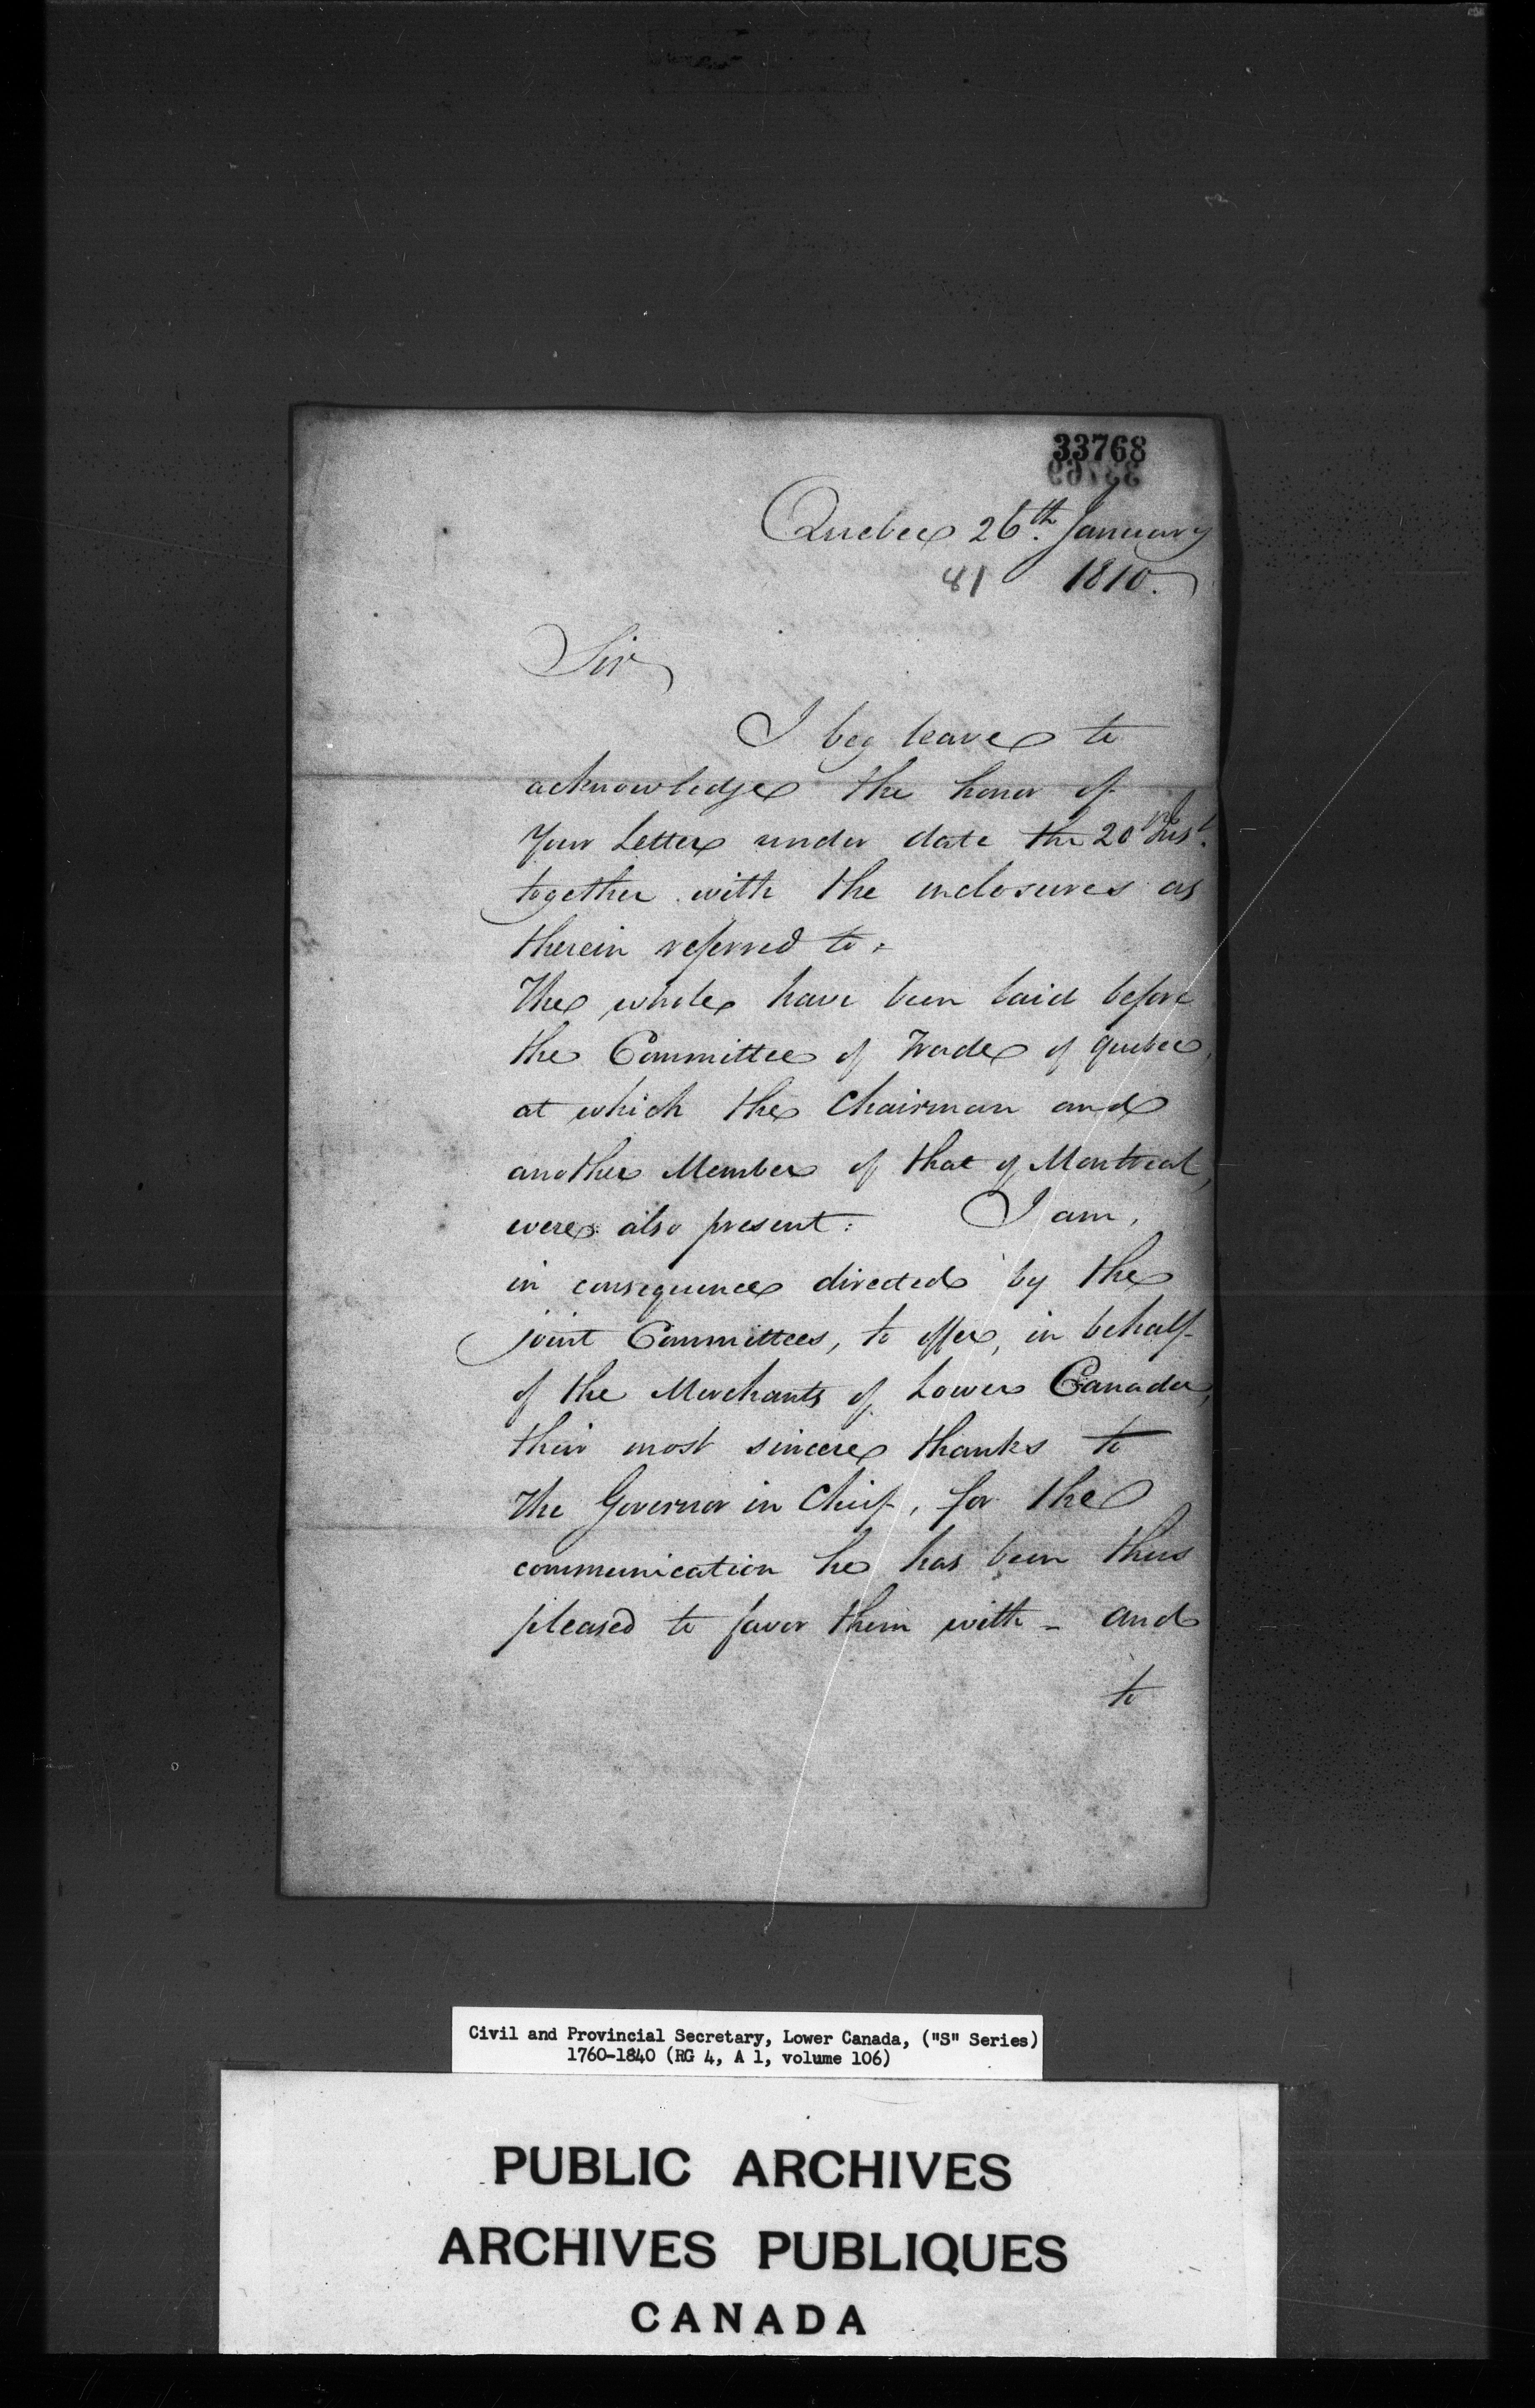 33768
Quebec 26th. January
81 1810.
Sir
I beg leave to
acknowledge the honor of
Your Letter under date the 20th Inst.
together with the inclosures as
therein referred to.
The whole have been laid before
the Committee of Trade of Quebec,
at which the Chairman and
another Member of that of Montreal,
were also present: I am,
in consequence directed by the
joint Committees, to offer, in behalf
of the Merchants of Lower Canada,
their most sincere thanks to
the Governor in Chief, for the
communication he has been thus
pleased to favor them with - and
to
Civil and Provincial Secretary, Lower Canada, ("S" Series)
1760-1840 (RG 4, A 1, volume 106)
PUBLIC ARCHIVES
ARCHIVES PUBLIQUES
CANADA